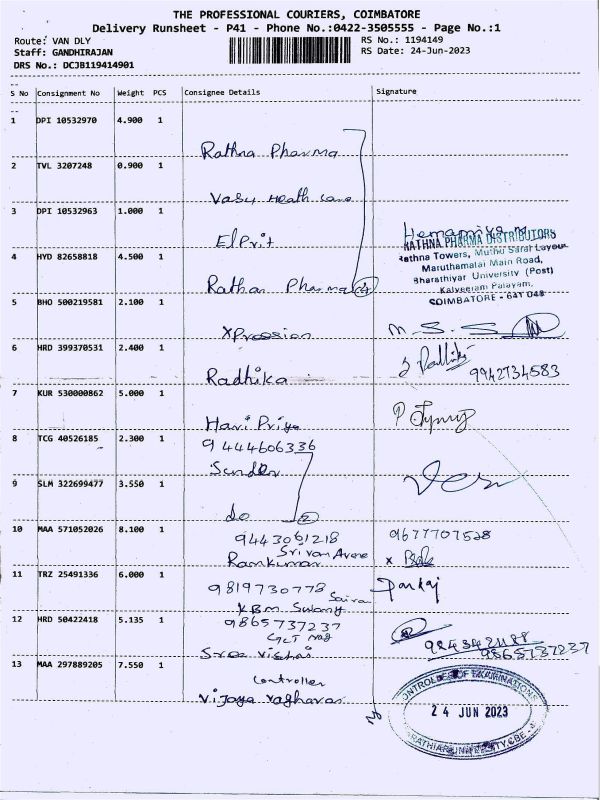 THE PROFESSIONAL COURIERS, COIMBATORE
Delivery Runsheet - P41 - Phone No.:0422-3505555 - Page No.:1
Route: VAN DLY
Staff: GANDHIRAJAN
DRS No.: DCJB119414901
RS No.: 1194149
RS Date: 24-Jun-2023
S No Consignment No Weight PCS Consignee Details Signature
1 DPI 10532970 4.900 1
Rathna Pharma
2 TVL 3207248 0.900 1
Vasu Heath Care
3 DPI 10532963 1.000 1
ElPrit
Hemapriya
RATHNA PHARMA DISTRIBUTORS
Rathna Towers, Muthu Sarat Layout
Maruthamalai Main Road,
Bharathiyar University (Post)
Kalveeram Palayam,
COIMBATORE - 641 046
4 HYD 82658818 4.500 1
Rathan Pharma 4
5 BHO 500219581 2.100 1
Xpression M.S.S
6 HRD 399370531 2.400 1
Radhika 9942734583
7 KUR 530000862 5.000 1
Hari Priya
8 TCG 40526185 2.300 1
9444606336
Sunder
9 SLM 322699477 3.550 1
do 2
10 MAA 571052026 8.100 1
9443061218 9677707528
Srivan Avene
Ramkumar x
11 TRZ 25491336 6.000 1
9819730778 Sairam Pankaj
KBM Swamy
12 HRD 50422418 5.135 1
9865737237
9843421188
9865737237
Sree Vishai
13 MAA 297889205 7.550 1
Controller
Vijaya Raghavan
CONTROLLER OF EXAMINATIONS
24 JUN 2023
BHARATHIAR UNIVERSITY, CBE